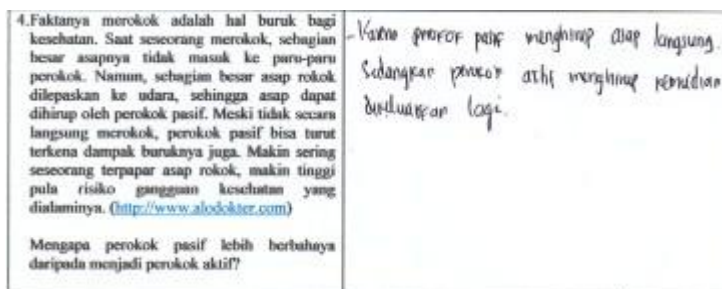 4. Faktanya merokok adalah hal buruk bagi
kesehatan. Saat seseorang merokok, sebagian
besar asapnya tidak masuk ke paru-paru
perokok. Namun, sebagian besar asap rokok
dilepaskan ke udara, sehingga asap dapat
dihirup oleh perokok pasif. Meski tidak secara
langsung merokok, perokok pasif bisa turut
terkena dampak buruknya juga. Makin sering
seseorang terpapar asap rokok, makin tinggi
pula risiko gangguan kesehatan yang
dialaminya. (http://www.alodokter.com)
Mengapa perokok pasif lebih berbahaya
daripada menjadi perokok aktif?
- Karna perokok pasif menghirup asap langsung.
Sedangkan perokok aktif menghirup kemudian
dikeluarkan lagi.